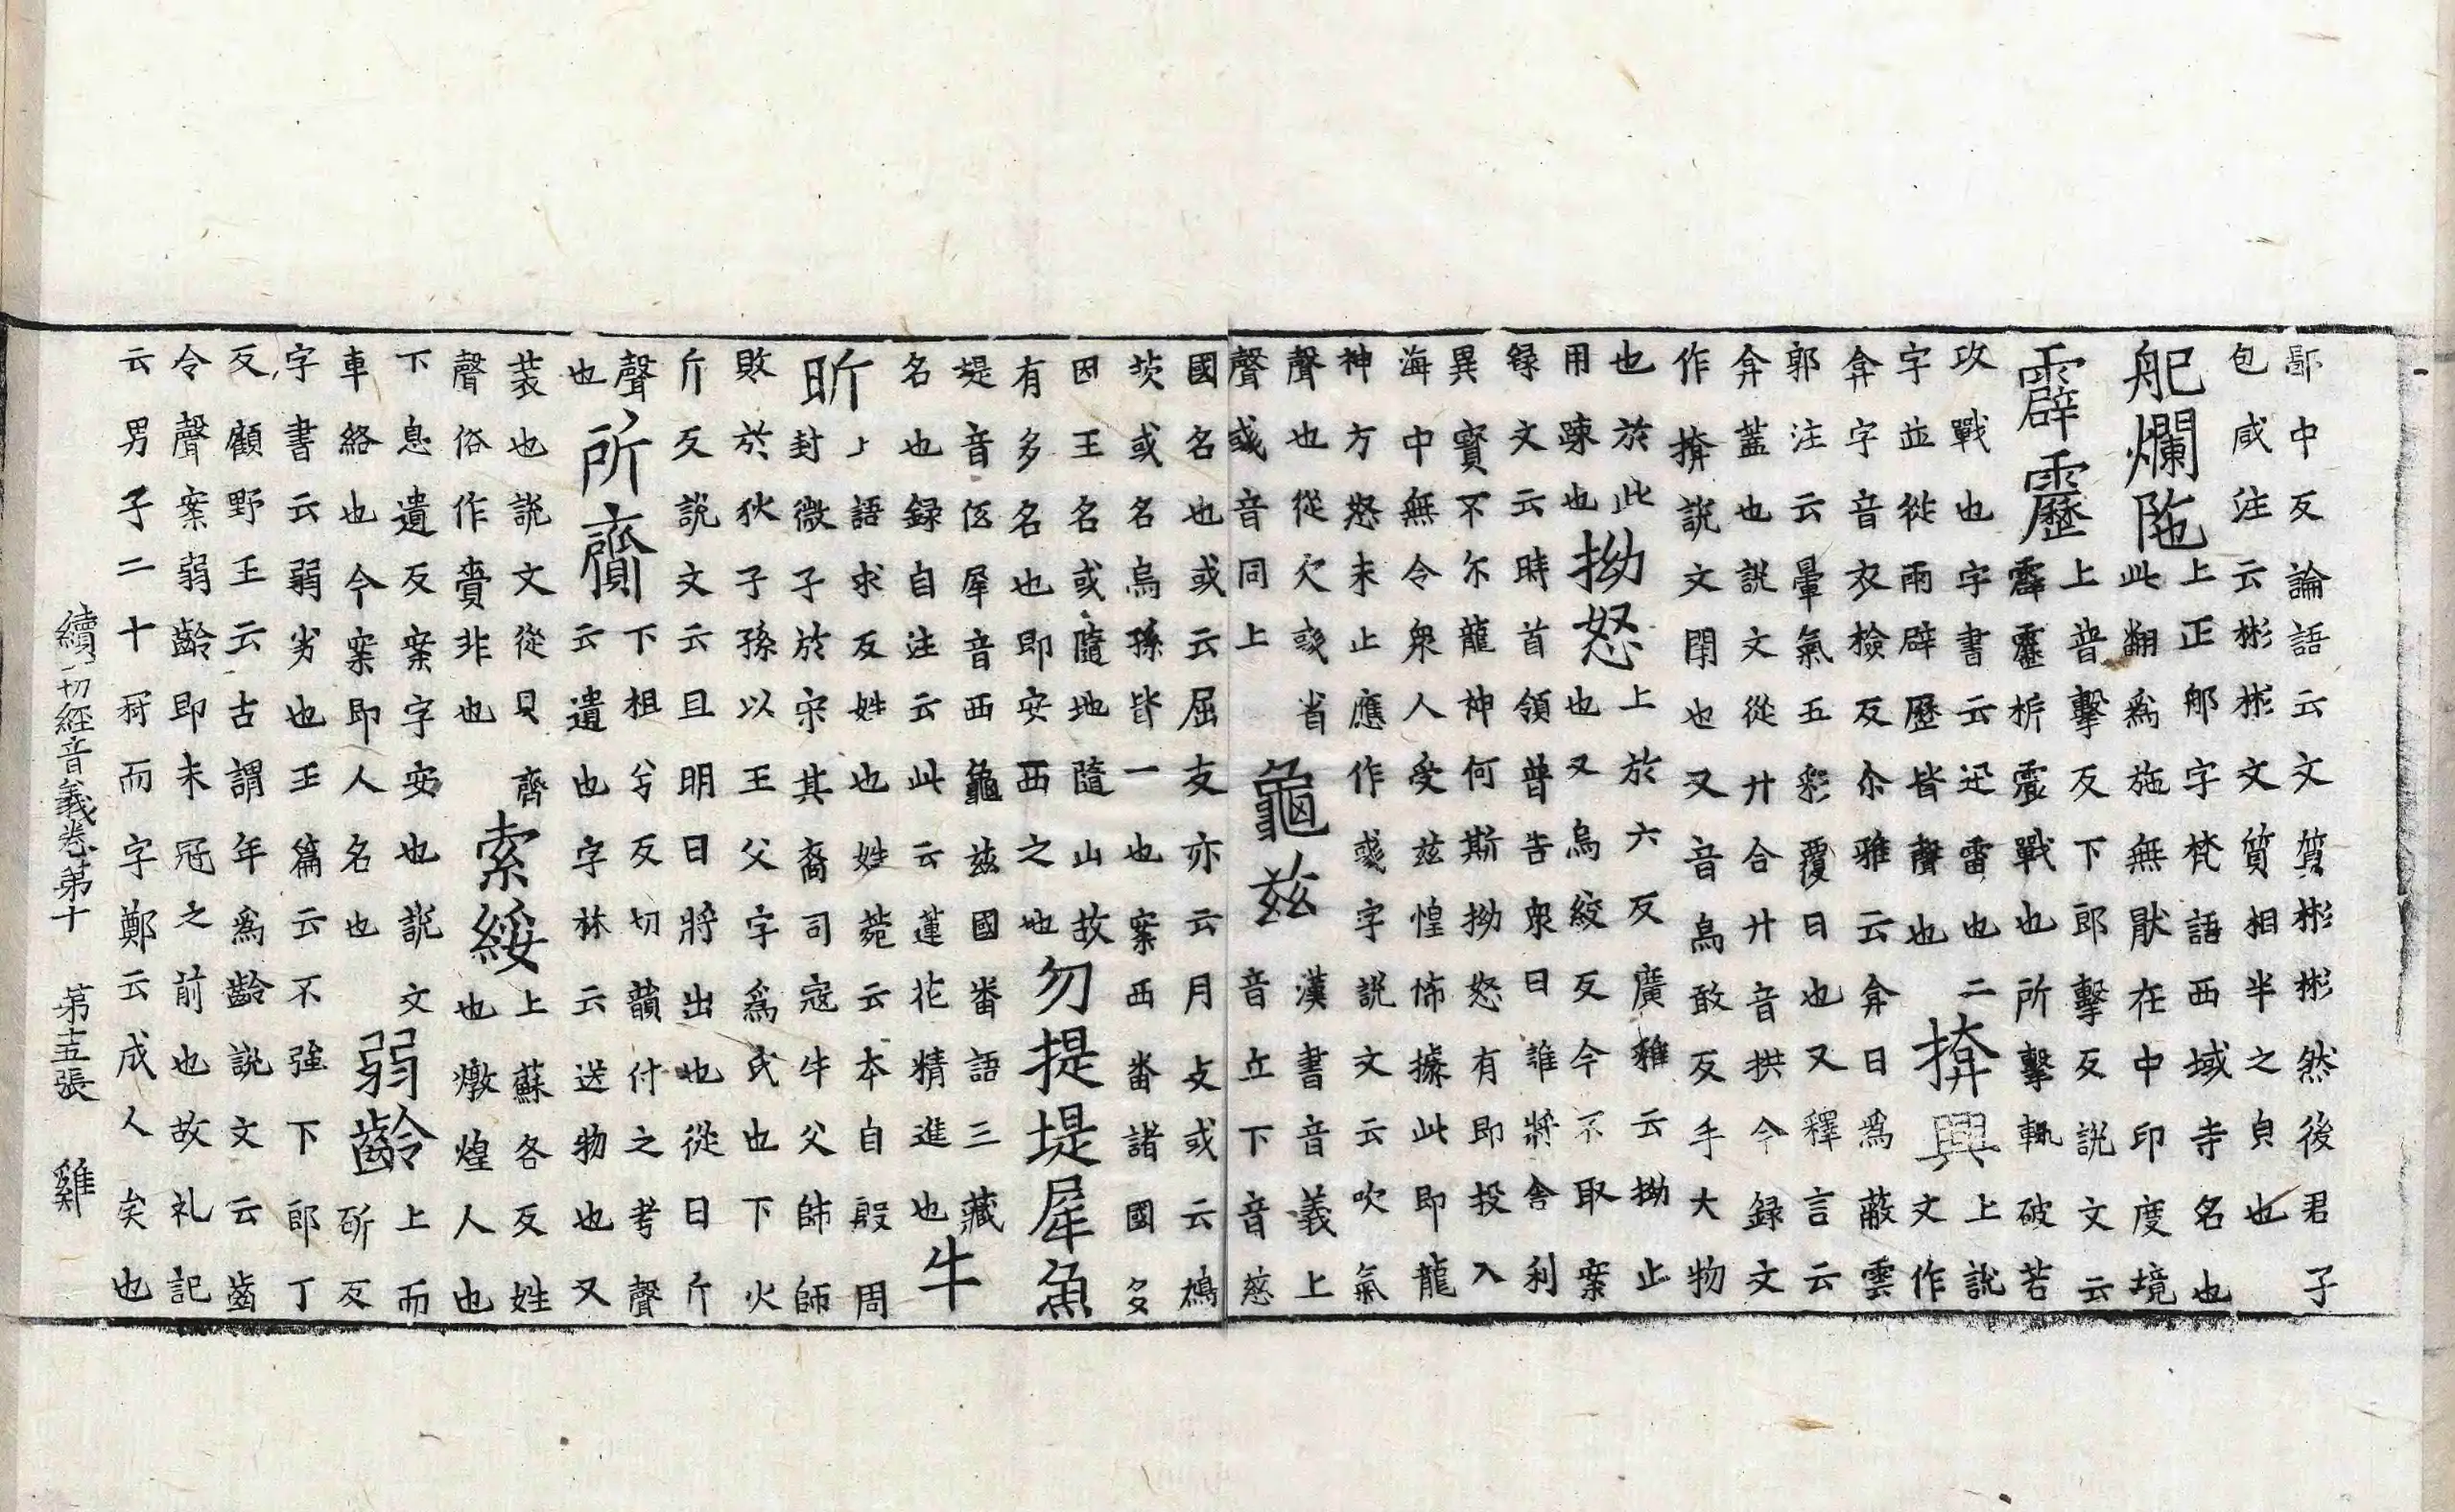 鄙中反論語云文質彬彬然後君子
包咸注云彬彬文質相半之㒵也
舥爛陁
上正舥字梵語西域寺名也
此翻爲施無猒在中印度境
霹靂
上普擊反下郎擊反說文云
霹靂析震戰也所擊輒破若
攻戰也字書云迅雷也二
字並從雨辟歷皆聲也
揜興
上說
文作
弇字音衣檢反尒雅云弇日爲蔽雲
郭注云暈氣五彩覆日也又釋言云
弇蓋也說文從廾合廾音拱今録文
作揜說文閉也又音烏敢反手大物
也於此
用踈也
拗怒
上於六反廣雅云拗止
也又烏絞反今不取案
録文云時首領普告衆曰誰將舍利
異寶不尒龍神何斯拗怒有即投入
海中無令衆人受茲惶怖據此即龍
神方怒未止應作欻字說文云吹氣
聲也從欠㷎省
聲或音同上
龜茲
漢書音義上
音丘下音慈
國名也或云屈支亦云月支或云鳩
茨或名烏孫皆一也案西畨諸國多
因王名名或隨地隨山故
有多名也即安西之地
勿提堤犀魚
堤音伍犀音西龜茲國畨語三藏
名也録自注云此云蓮花精進也
牛
昕
上語求反姓也姓菀云本自殷周
封微子於宋其裔司寇牛父帥師
敗於狄子孫以王父字爲氏也下火
斤反說文云旦明日將出也從日斤
聲
也
所齎
下祖兮反切韻付之考聲
云遺也字林云送物也又
裝也說文從貝齊
聲俗作賷非也
索綏
上蘇各反姓
也燉煌人也
下息遺反案字安也說文
車絡也今案即人名也
弱齡
上而
斫反
字書云弱劣也玉篇云不強下郎丁
反顧野王云古謂年爲齡說文云齒
令聲案弱齡即未冠之前也故礼記
云男子二十冠而字鄭云成人矣也
續一切經音義卷第十 第十五張 雞